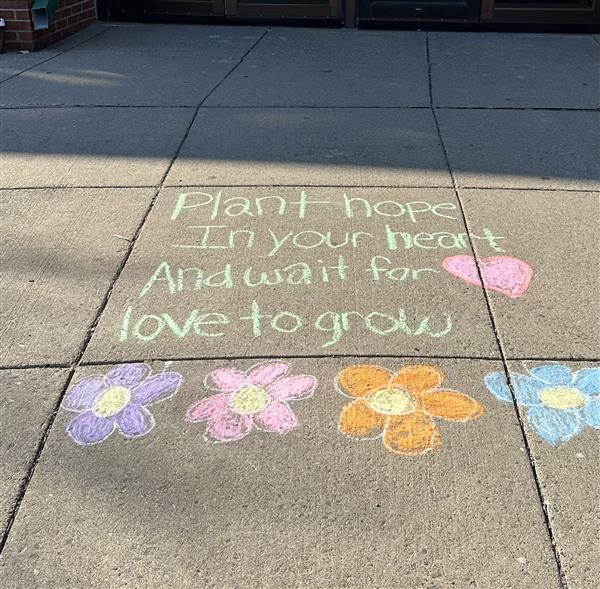 Plant hope
In your heart
And wait for
love to grow